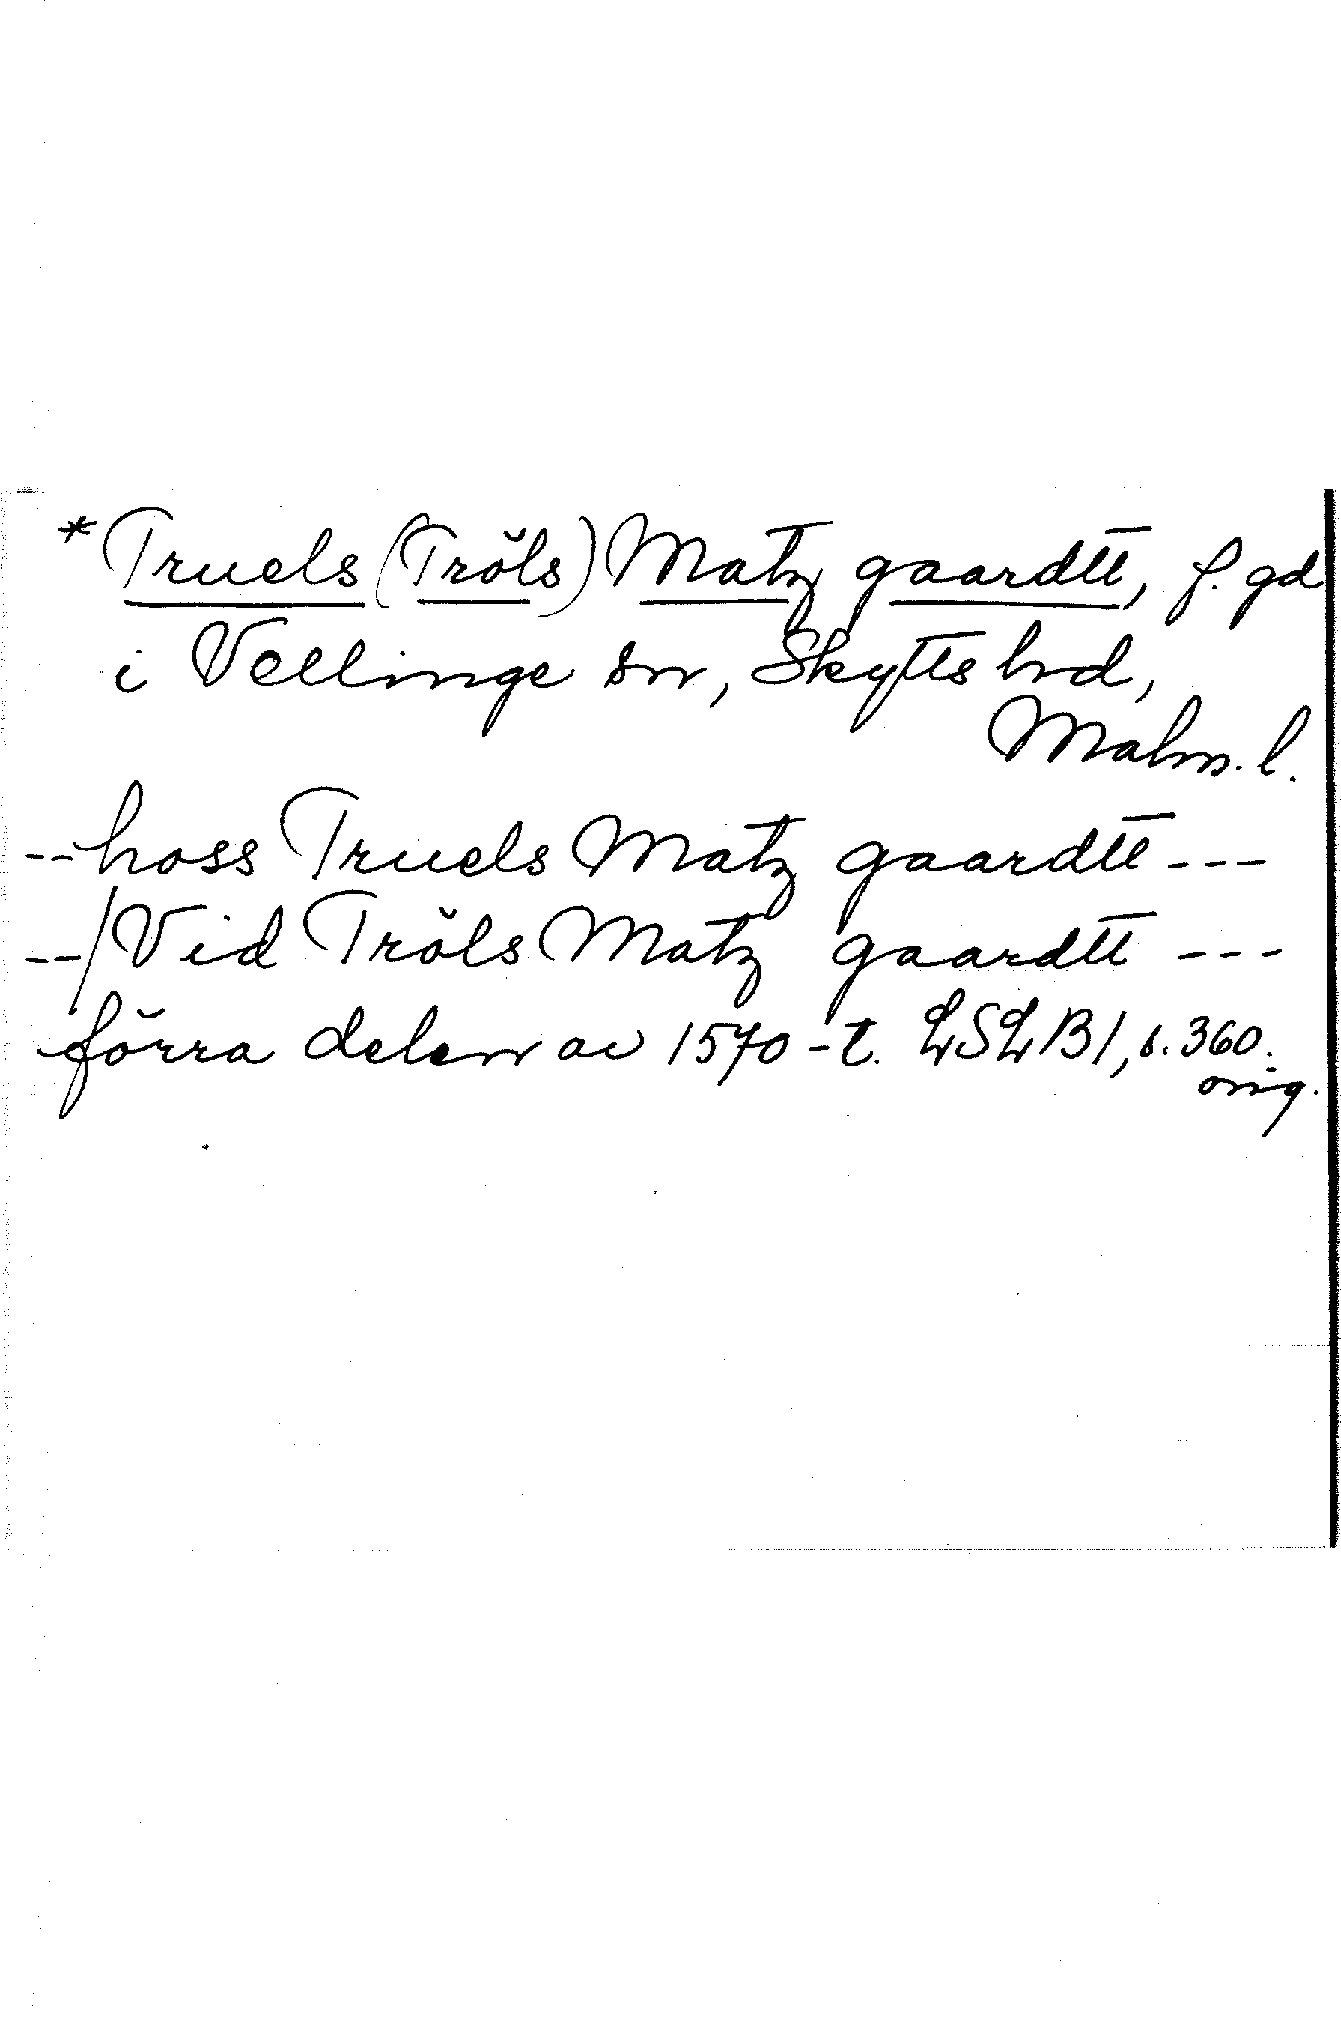 *Truels (Tröls) Matz gaardtt, f. gd
i Vellinge sn, Skytts hd,
Malm. l.
-- hoss Truels Matz gaardtt ---
-- / Vid Tröls Matz gaardtt ---
förra delen av 1570-t. LSLB1, s. 360.
orig.